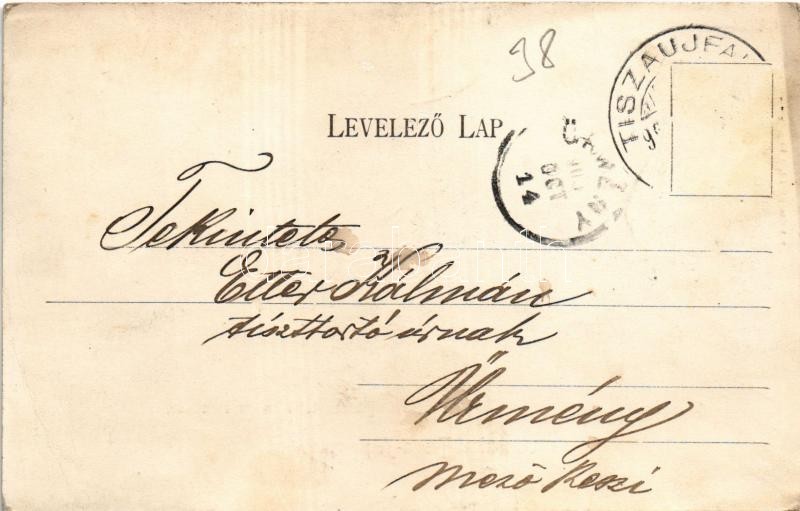 98
TISZAUJFA
LEVELEZŐ LAP
ÜRMÉNY
OCT
14
Tekintetes
Etter Kálmán
tiszttartó úrnak
Ürmény
Mező Keszi